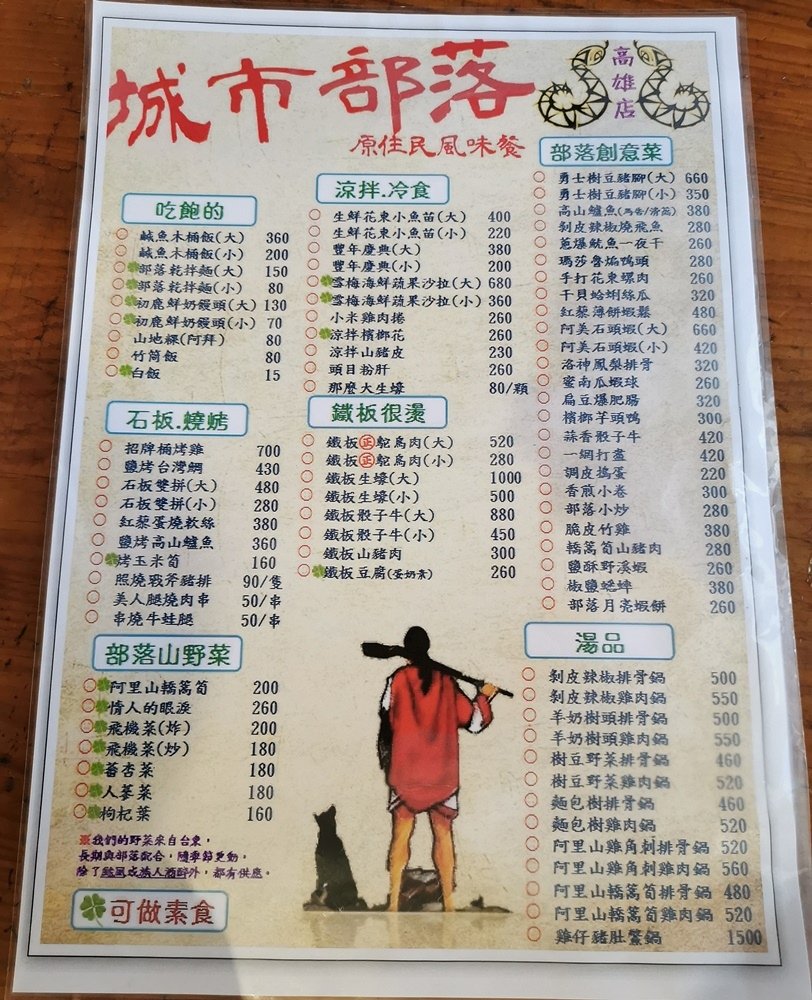 城市部落
高雄店
原住民風味餐
吃飽的
鹹魚木桶飯(大) 360
鹹魚木桶飯(小) 200
部落乾拌麵(大) 150
部落乾拌麵(小) 80
初鹿鮮奶饅頭(大) 130
初鹿鮮奶饅頭(小) 70
山地粿(阿拜) 80
竹筒飯 80
白飯 15
石板.燒烤
招牌桶烤雞 700
鹽烤台灣鯛 430
石板雙拼(大) 480
石板雙拼(小) 280
紅藜蛋燒軟絲 380
鹽烤高山鱸魚 360
烤玉米筍 160
照燒戰斧豬排 90/隻
美人腿燒肉串 50/串
串燒牛蛙腿 50/串
部落山野菜
阿里山轎篙筍 200
情人的眼淚 260
飛機菜(炸) 200
飛機菜(炒) 180
蕃杏菜 180
人蔘菜 180
枸杞葉 160
※我們的野菜來自台東，
長期與部落配合，隨季節更動，
除了颱風或族人酒醉外，都有供應。
可做素食
涼拌.冷食
生鮮花東小魚苗(大) 400
生鮮花東小魚苗(小) 220
豐年慶典(大) 380
豐年慶典(小) 200
雪梅海鮮蔬果沙拉(大) 680
雪梅海鮮蔬果沙拉(小) 360
小米雞肉捲 260
涼拌檳榔花 260
涼拌山豬皮 230
頭目粉肝 260
那麼大生蠔 80/顆
鐵板很燙
鐵板正鴕鳥肉(大) 520
鐵板正鴕鳥肉(小) 280
鐵板生蠔(大) 1000
鐵板生蠔(小) 500
鐵板骰子牛(大) 880
鐵板骰子牛(小) 450
鐵板山豬肉 300
鐵板豆腐(蛋奶素) 260
部落創意菜
勇士樹豆豬腳(大) 660
勇士樹豆豬腳(小) 350
高山鱸魚(馬告/清蒸) 380
剝皮辣椒燒飛魚 280
蔥爆魷魚一夜干 260
瑪莎魯焔鴨頭 280
手打花東螺肉 260
干貝蛤蜊絲瓜 320
紅藜薄餅蝦鬆 480
阿美石頭蝦(大) 660
阿美石頭蝦(小) 420
洛神鳳梨排骨 320
蜜南瓜蝦球 260
扁豆爆肥腸 320
檳榔芋頭鴨 300
蒜香骰子牛 420
一網打盡 420
調皮搗蛋 220
香煎小卷 300
部落小炒 280
脆皮竹雞 380
轎篙筍山豬肉 280
鹽酥野溪蝦 260
椒鹽蟋蟀 380
部落月亮蝦餅 260
湯品
剝皮辣椒排骨鍋 500
剝皮辣椒雞肉鍋 550
羊奶樹頭排骨鍋 500
羊奶樹頭雞肉鍋 550
樹豆野菜排骨鍋 460
樹豆野菜雞肉鍋 520
麵包樹排骨鍋 460
麵包樹雞肉鍋 520
阿里山雞角刺排骨鍋 520
阿里山雞角刺雞肉鍋 560
阿里山轎篙筍排骨鍋 480
阿里山轎篙筍雞肉鍋 520
雞仔豬肚鱉鍋 1500